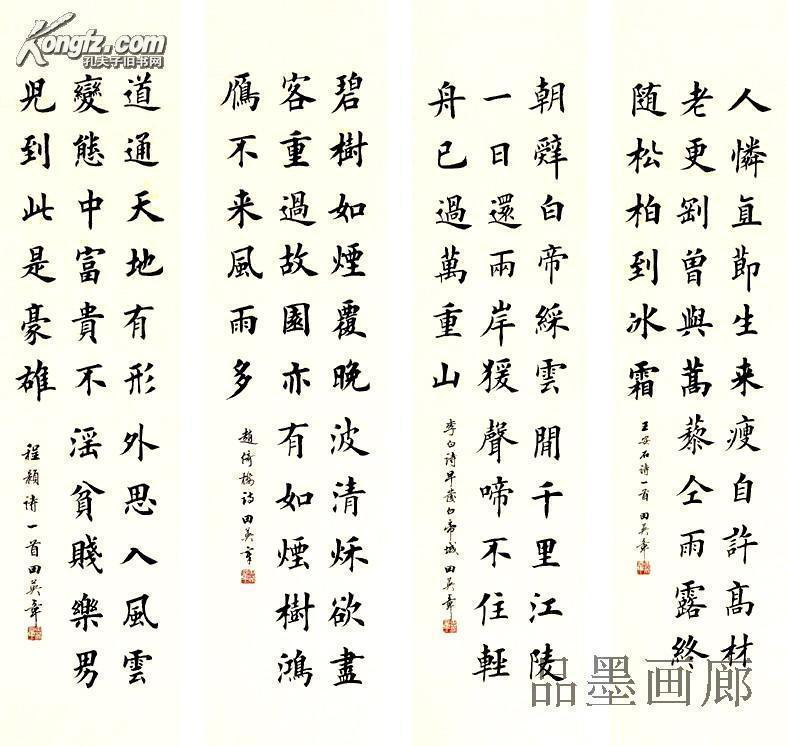 Kongfz.com
孔夫子旧书网
人憐直節生来瘦自許高材
老更剛曾與蒿藜仝雨露終
随松柏到冰霜
王安石诗一首 田英章
朝辤白帝綵雲間千里江陵
一日還兩岸猨聲啼不住輕
舟已過萬重山
李白诗早發白帝城 田英章
碧樹如煙覆晚波清秌欲盡
客重過故園亦有如煙樹鴻
鴈不来風雨多
趙倚樓诗 田英章
道通天地有形外思入風雲
變態中富貴不淫貧賤樂男
児到此是豪雄
程颢诗一首 田英章
品墨画廊